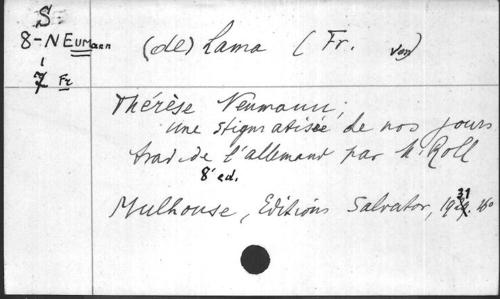 S
8-NEumann
7 Fr
(de) Lama (Fr. von)
Thérèse Neumann;
une stigmatisée de nos jours
trad. de l'allemand par N. Roll
8e ed.
Mulhouse, Editions Salvator, 1931. 16o